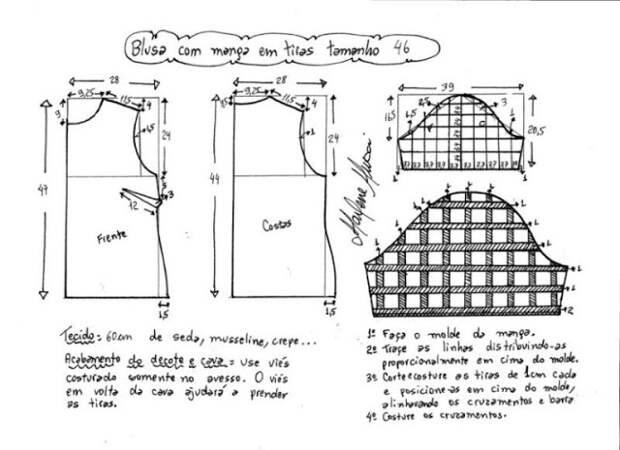 Blusa com manga em tiras tamanho 46
28
9,25
11,5
4
9
1,5
24
47
3
12
Frente
1,5
28
9,25
11,5
4
1
24
44
Costas
1,5
Marlene Mukai
39
16,5
1,5
3
1
20,5
1
1
1
1
1
1
1
1
1
2
Tecido: 60cm de seda, musseline, crepe...
Acabamento do decote e cava = Use viés
costurado somente no avesso. O viés
em volta da cava ajudará a prender
as tiras.
1º Faça o molde da manga.
2º Trace as linhas distribuindo-as
proporcionalmente em cima do molde.
3º Corte e costure as tiras de 1cm cada
e posicione-as em cima do molde,
alinhavando os cruzamentos e barra
4º Costure os cruzamentos.